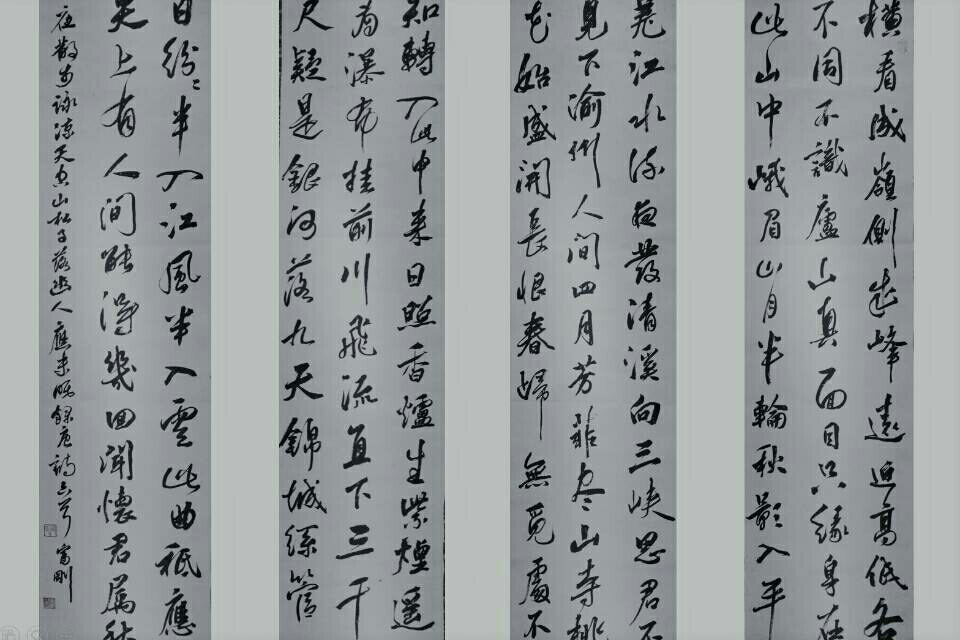 橫看成嶺側成峰遠近高低各
不同不識廬山真面目只緣身在
此山中峨眉山月半輪秋影入平
羌江水流夜發清溪向三峽思君不
見下渝州人間四月芳菲尽山寺桃
花始盛開長恨春歸無覓處不
知轉入此中来日照香爐生紫煙遥
看瀑布挂前川飛流直下三千
尺疑是銀河落九天錦城絲管
日紛〻半入江風半入雲此曲祗應
天上有人間能得幾回聞懷君屬秋
夜散步詠涼天空山松子落幽人應未眠錄唐詩六首 富剛